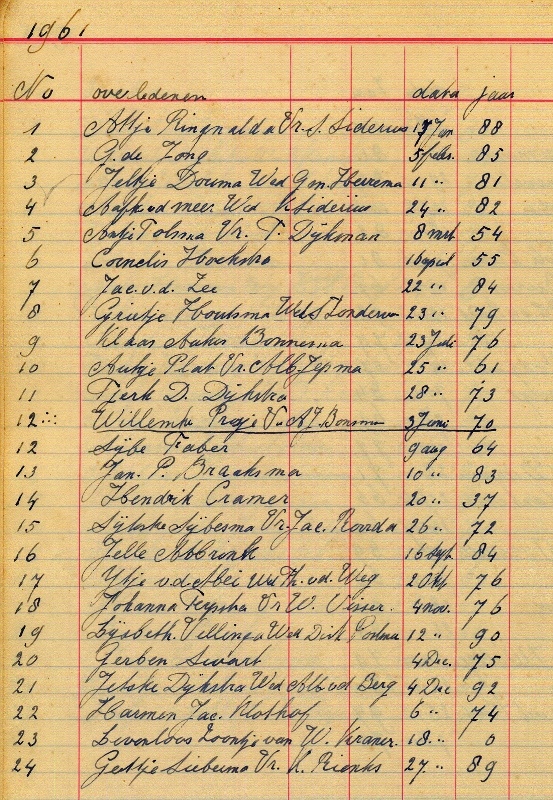 1961
No overledenen data jaar
1 Altje Ringnalda Vr. S. Siderius 17 Jan 88
2 G. de Jong 5 febr. 85
3 Jeltje Douma Wed G. Heerema 11 " 81
4 v d meer Wed K Siderius 24 " 82
5 Antje Tolsma Vr. T. Dijkman 8 mrt 54
6 Cornelis Hoekstra 10 april 55
7 Jac. v. d. Zee 22 " 84
8 Grietje Houtsma Wed S Zonderva 23 " 79
9 Klaas Aukes Bonnema 23 Juli 76
10 Aukje Plat Vr. Alb. Zijsma 25 " 61
11 Tjerk D. Dijkstra 28 " 73
12 Willemke Vr A. J. Bonsma 3 Juni 70
12 Sijbe Faber 9 aug 64
13 Jan. P. Braaksma 10 " 83
14 Hendrik Cramer 20 " 37
15 Sijtske Sijbesma Vr. Jac. Roorda 26 " 72
16 Jelle Abbrink 16 Sept. 84
17 Ytje v.d. Abei Wed Th. v.d. Weg 2 Okt 76
18 Johanna Terpstra Vr W. Visser. 4 nov. 76
19 Lijsbeth. Vellinga Wed Dirk Postma 12 " 90
20 Gerben Swart 4 Dec. 75
21 Jetske Dijkstra Wed Alb. v d Berg 4 Dec 92
22 Harmen Jac. Klothof 6 " 74
23 Levenloos Zoontje van W. Kramer. 18 " 0
24 Gettje Siebesma Vr. K. Rienks 27 " 89